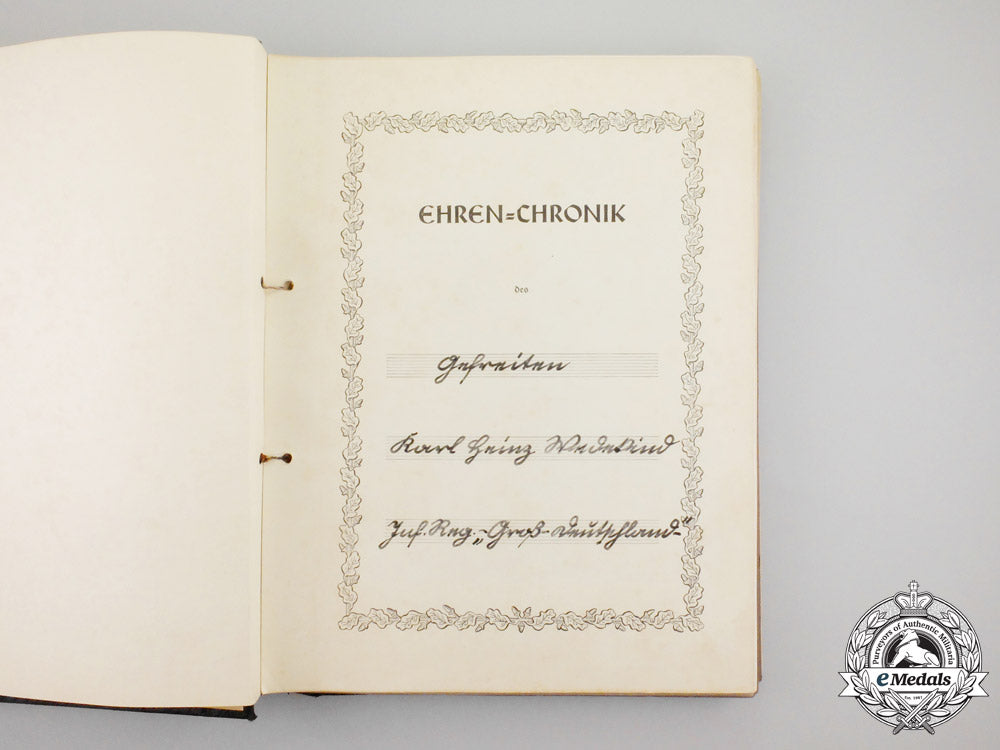 EHREN=CHRONIK
des
Gefreiten
Karl Heinz Wedekind
Inf. Reg. „Groß-Deutschland"
Purveyors of Authentic Militaria
eMedals
Est. 1967